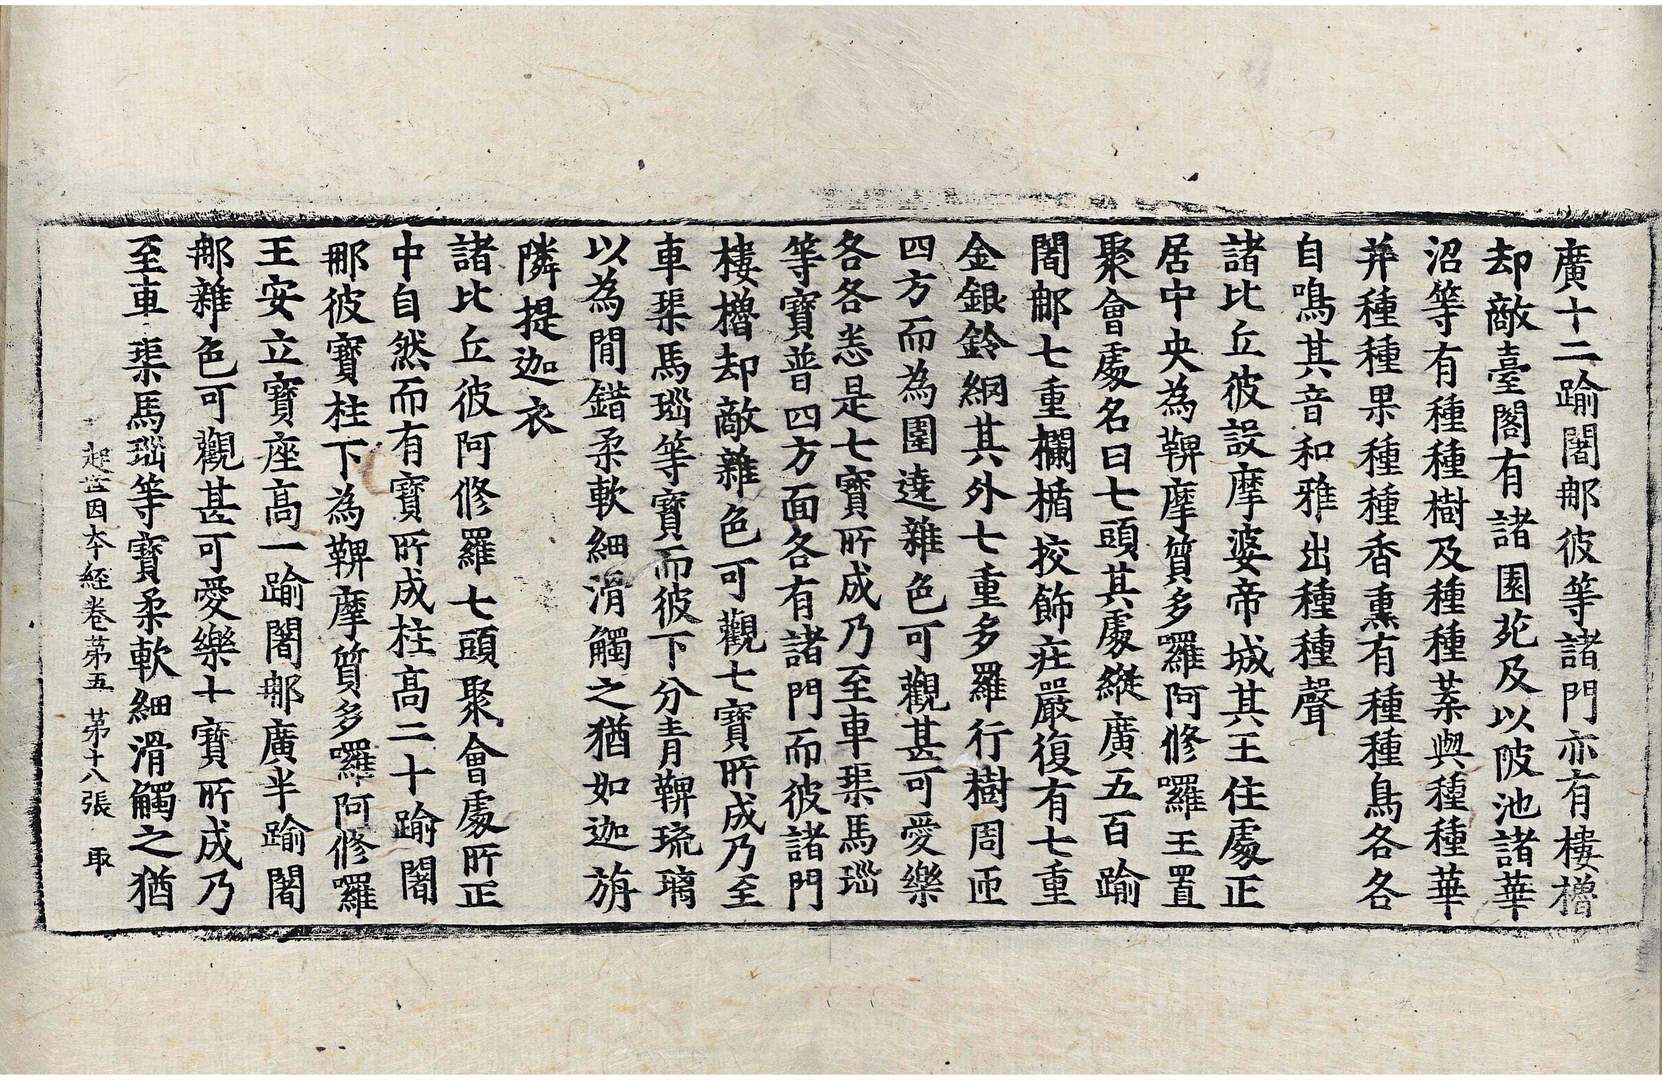 廣十二踰闍郍彼等諸門亦有樓櫓
却敵臺閣有諸園苑及以陂池諸華
沼等有種種樹及種種葉與種種華
并種種果種種香熏有種種鳥各各
自鳴其音和雅出種種聲
諸比丘彼設摩婆帝城其王住處正
居中央為鞞摩質多囉阿修囉王置
聚會處名曰七頭其處縱廣五百踰
闍郍七重欄楯挍飾莊嚴復有七重
金銀鈴網其外七重多羅行樹周迊
四方而為圍遶雜色可觀甚可愛樂
各各悉是七寶所成乃至車𤦲馬瑙
等寶普四方面各有諸門而彼諸門
樓櫓却敵雜色可觀七寶所成乃至
車𤦲馬瑙等寶而彼下分青鞞琉璃
以為閒錯柔軟細滑觸之猶如迦旃
隣提迦衣
諸比丘彼阿修羅七頭聚會處所正
中自然而有寶所成柱高二十踰闍
郍彼寶柱下為鞞摩質多囉阿修囉
王安立寶座高一踰闍郍廣半踰闍
郍雜色可觀甚可愛樂七寶所成乃
至車𤦲馬瑙等寶柔軟細滑觸之猶
起世因本經卷第五 第十八張 取